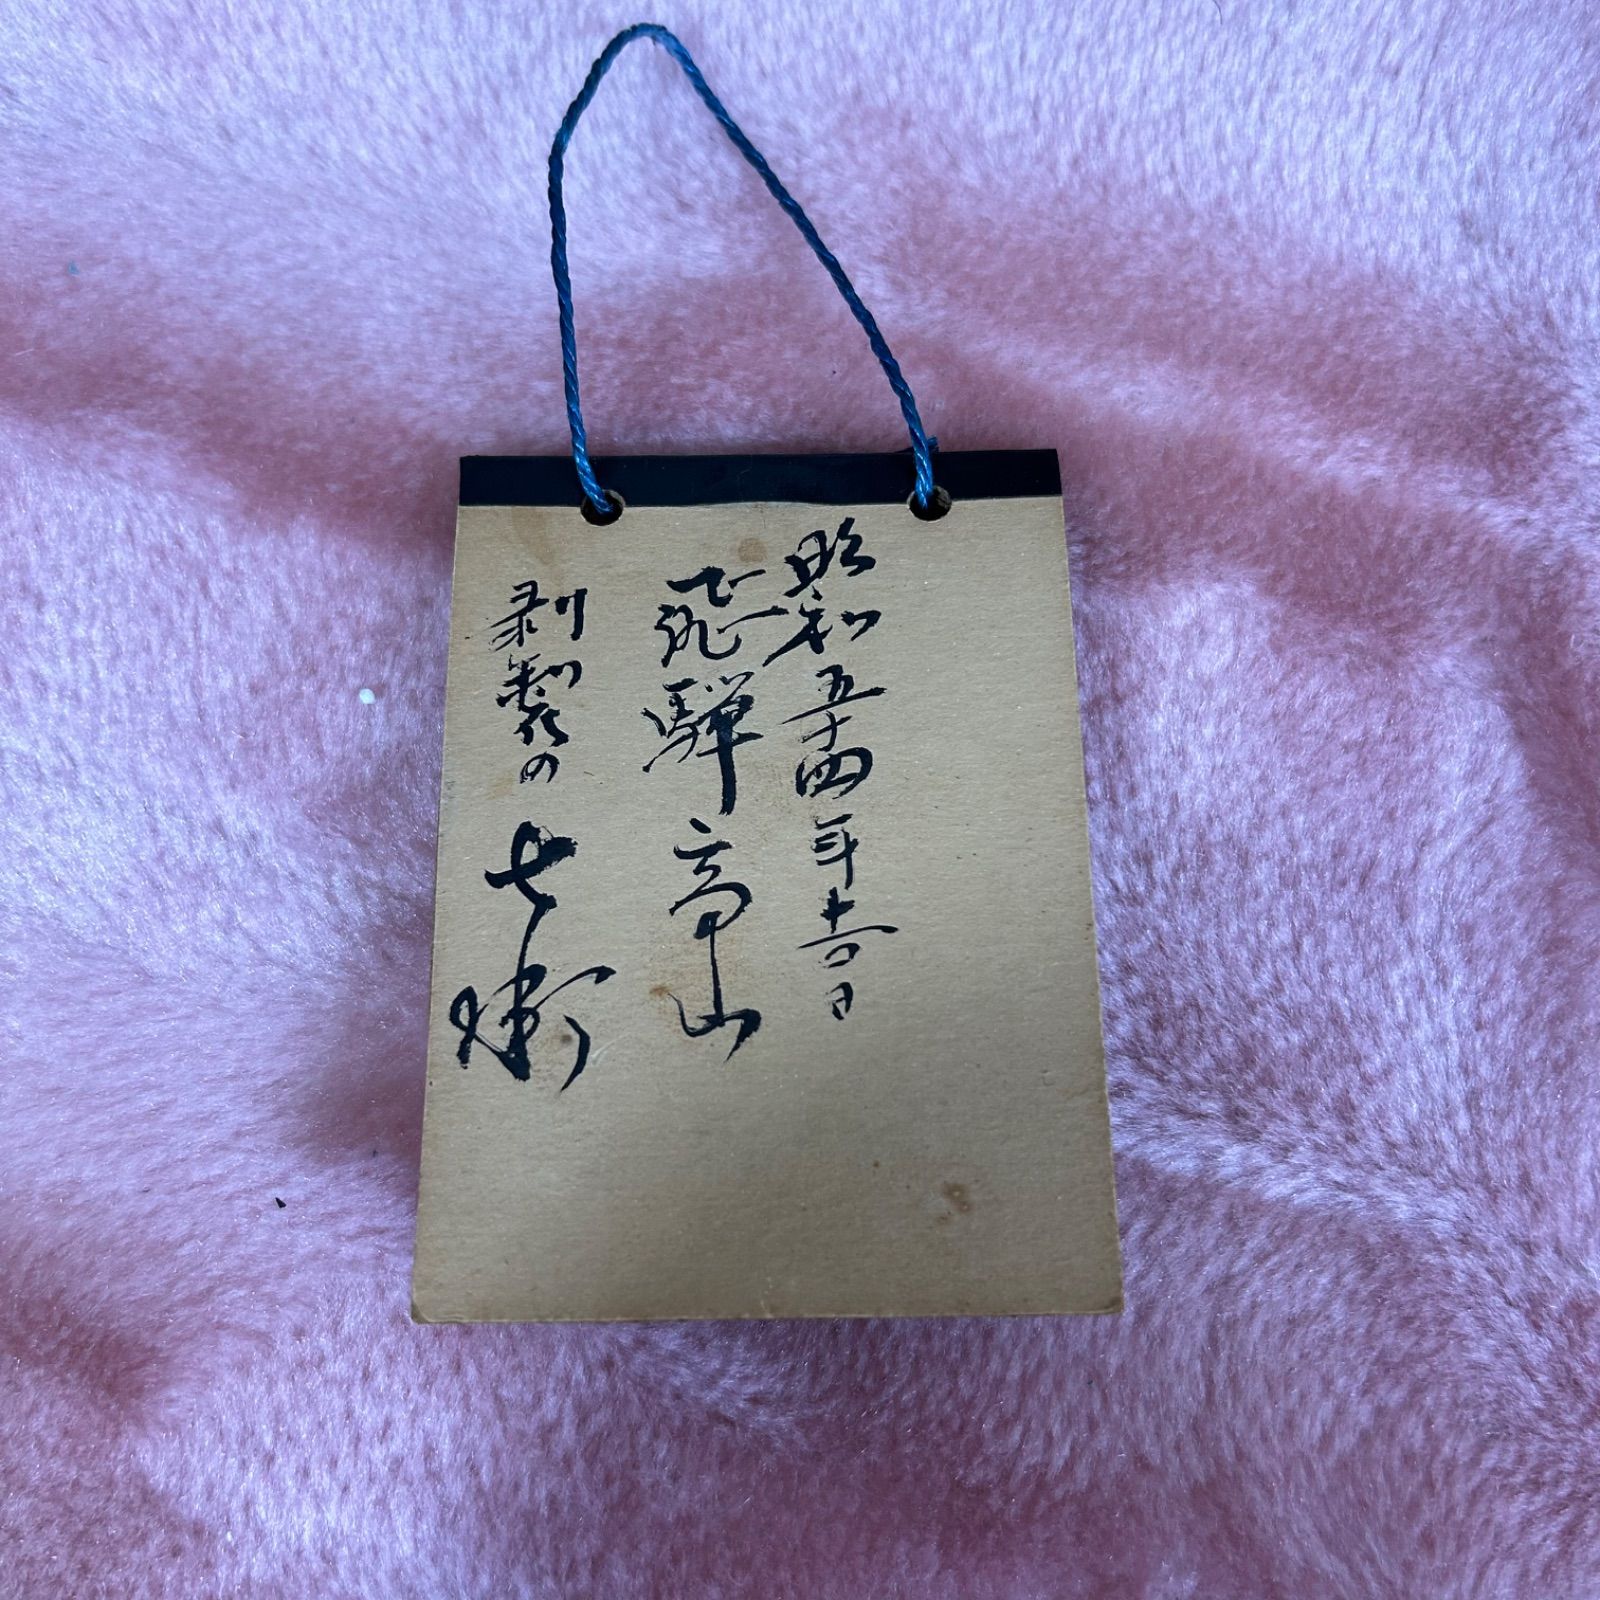 昭和五十四年十一月一日
飛騨高山
剥製の七